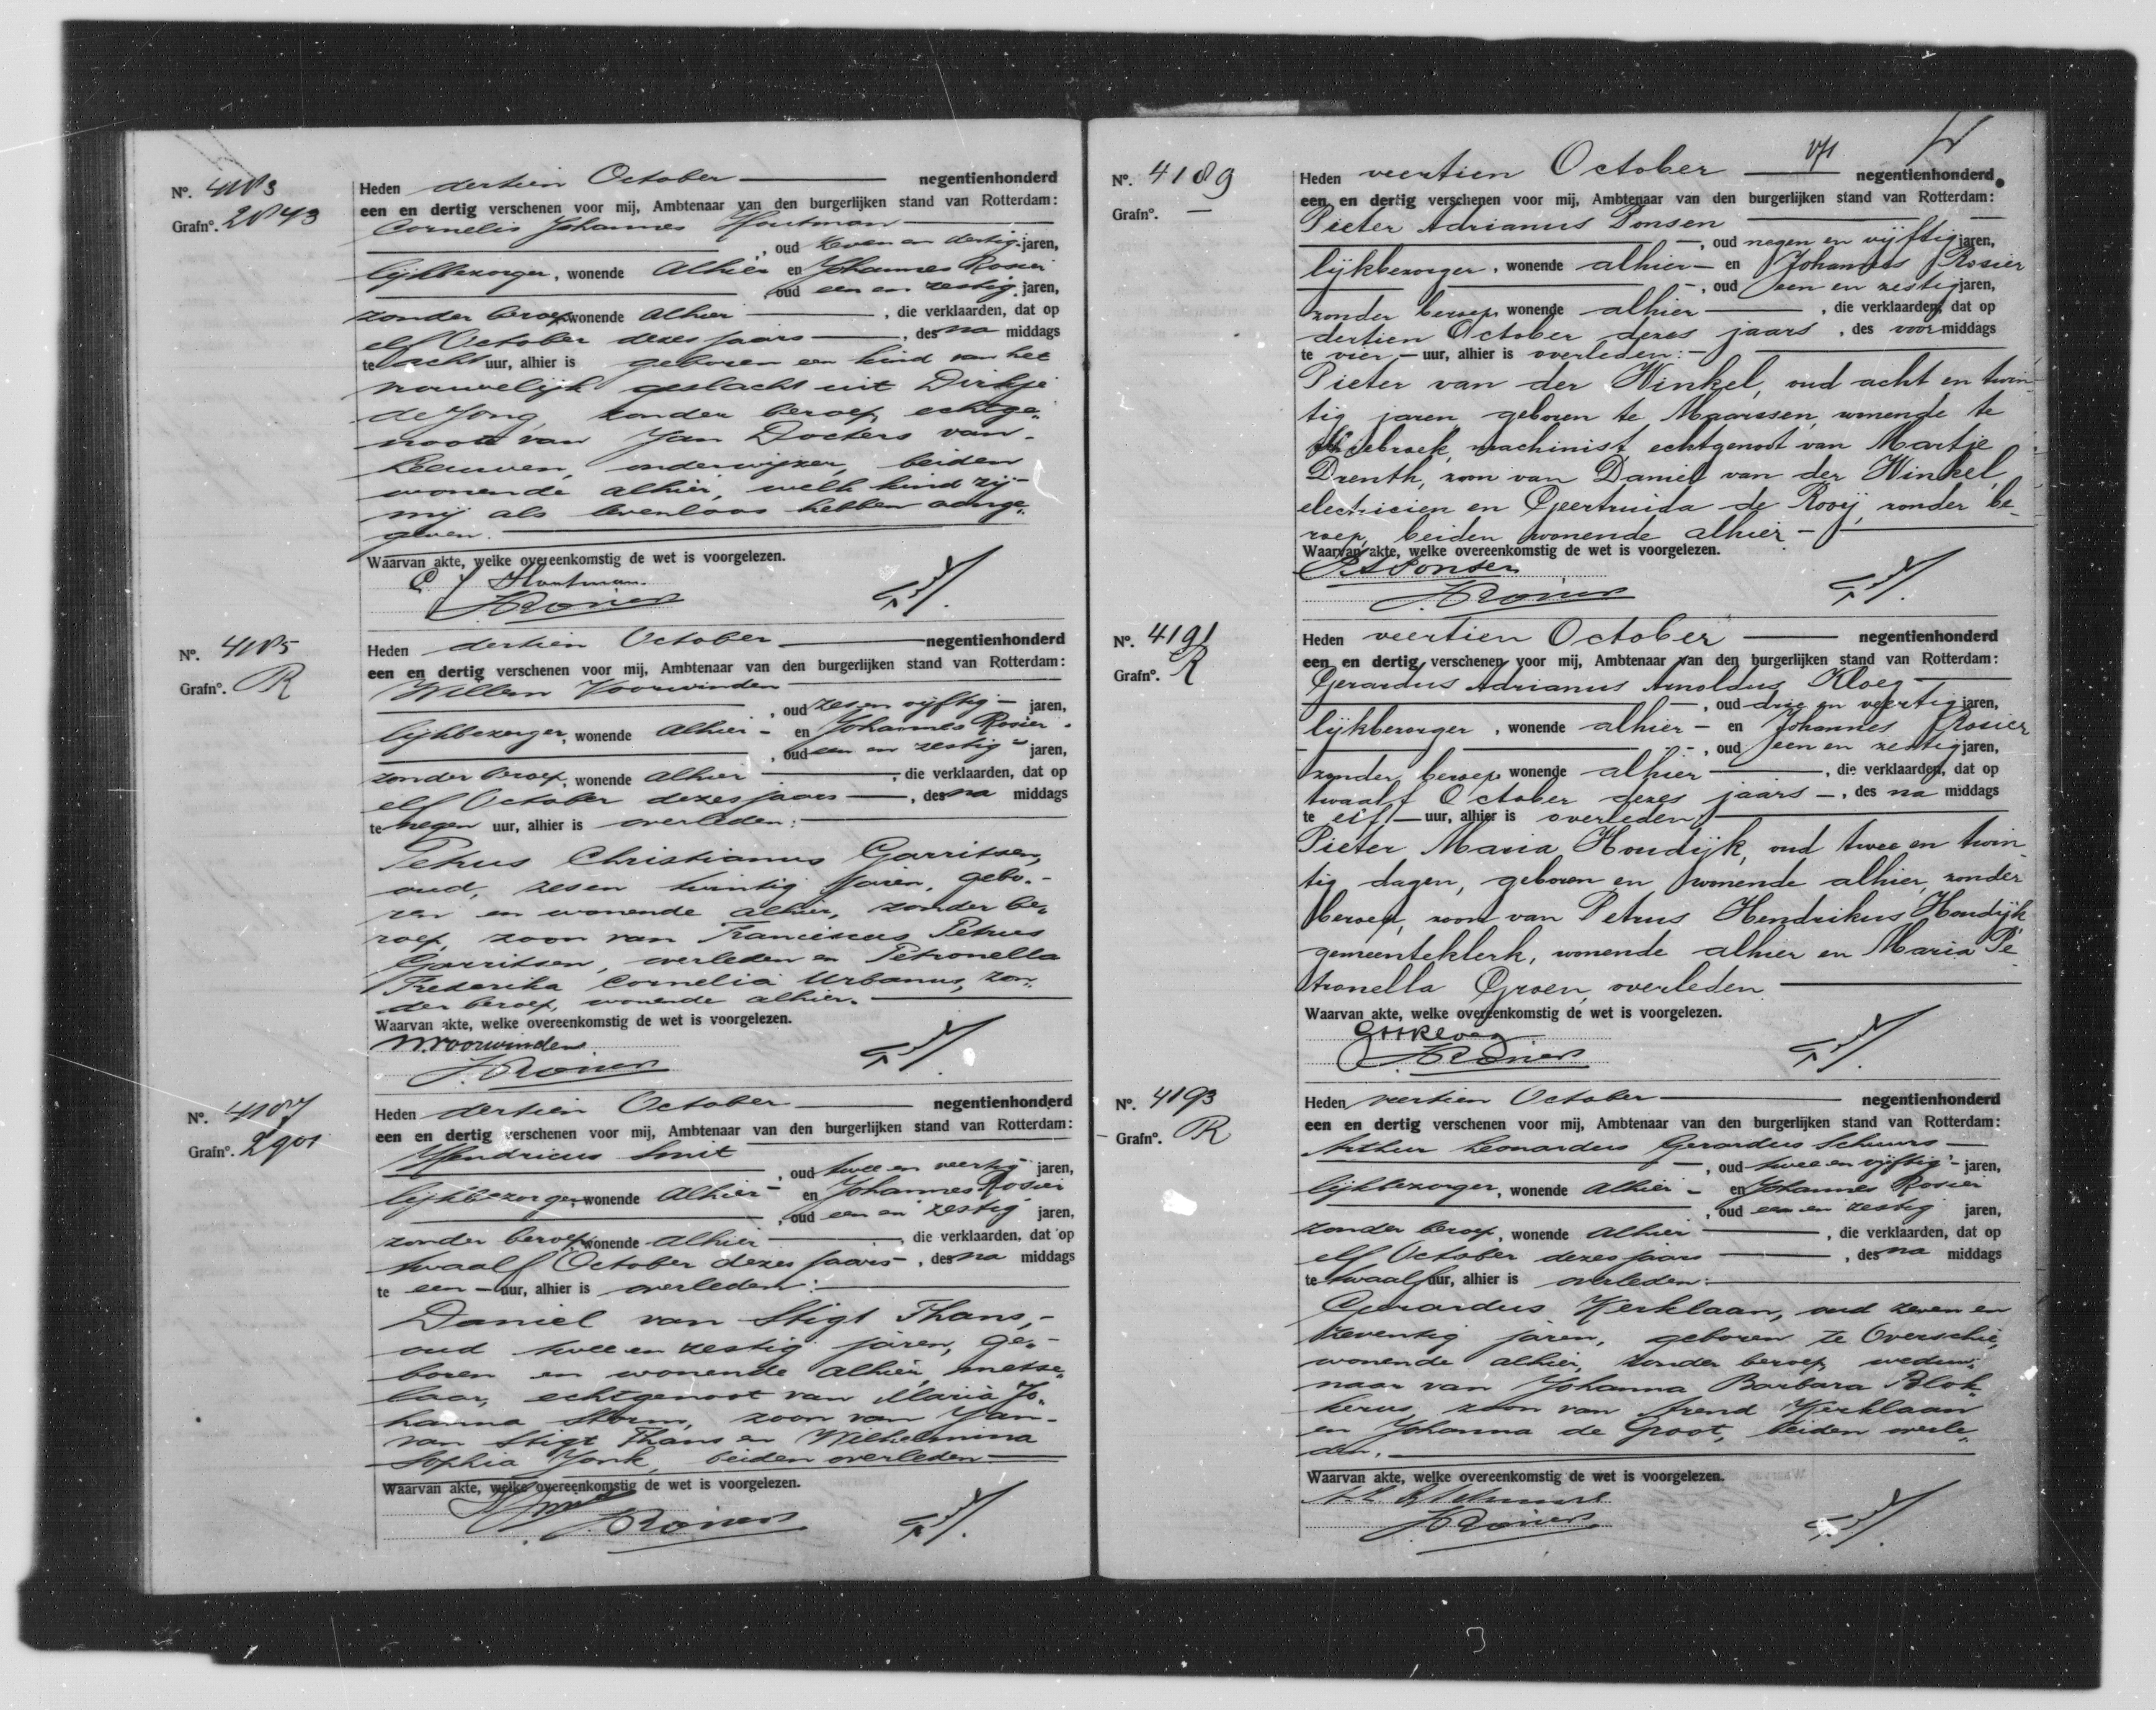 Nº. 4183
Grafnº. 2843
Heden dertien October negentienhonderd
een en dertig verschenen voor mij, Ambtenaar van den burgerlijken stand van Rotterdam:
Cornelis Johannes Houtman
, oud zeven en dertig jaren,
lijkbezorger, wonende alhier en Johannes Rosier
, oud een en zestig jaren,
zonder beroep, wonende alhier , die verklaarden, dat op
elf October dezes jaars , des na middags
te acht uur, alhier is geboren een kind van het
vrouwelijk geslacht uit Dirkje
de Jong, zonder beroep, echtge-
noote van Jan Docters van
Leeuwen, onderwijzer, beiden
wonende alhier, welk kind zij
mij als levenloos hebben aange-
geven.
Waarvan akte, welke overeenkomstig de wet is voorgelezen.
C J Houtman.
J. Rosier
Nº. 4185
Grafnº. R
Heden dertien October negentienhonderd
een en dertig verschenen voor mij, Ambtenaar van den burgerlijken stand van Rotterdam:
Willem Voorwinden
, oud zes en vijftig jaren,
lijkbezorger, wonende alhier en Johannes Rosier
, oud een en zestig jaren,
zonder beroep, wonende alhier , die verklaarden, dat op
elf October dezes jaars , des na middags
te negen uur, alhier is overleden:
Petrus Christianus Garritsen,
oud, zes en twintig jaren, gebo-
ren en wonende alhier, zonder be-
roep, zoon van Franciscus Petrus
Garritsen, overleden en Petronella
Frederika Cornelia Urbanus, zon-
der beroep, wonende alhier.
Waarvan akte, welke overeenkomstig de wet is voorgelezen.
W. Voorwinden
J. Rosier
Nº. 4187
Grafnº. 2901
Heden dertien October negentienhonderd
een en dertig verschenen voor mij, Ambtenaar van den burgerlijken stand van Rotterdam:
Hendricus Smit
, oud twee en veertig jaren,
lijkbezorger, wonende alhier en Johannes Rosier
, oud een en zestig jaren,
zonder beroep, wonende alhier , die verklaarden, dat op
twaalf October dezes jaars , des na middags
te een uur, alhier is overleden:
Daniel van Stigt Thans,
oud twee en zestig jaren, ge-
boren en wonende alhier, metse-
laar, echtgenoot van Maria Jo-
hanna Storm, zoon van Jan
van Stigt Thans en Wilhelmina
Sophia Jonk, beiden overleden
Waarvan akte, welke overeenkomstig de wet is voorgelezen.
H Smit
J. Rosier
171
Nº. 4189
Grafnº. —
Heden veertien October negentienhonderd
een en dertig verschenen voor mij, Ambtenaar van den burgerlijken stand van Rotterdam:
Pieter Adrianus Ponsen
, oud negen en vijftig jaren,
lijkbezorger, wonende alhier en Johannes Rosier
, oud een en zestig jaren,
zonder beroep, wonende alhier , die verklaarden, dat op
dertien October dezes jaars , des voor middags
te vier uur, alhier is overleden:
Pieter van der Winkel, oud acht en twin-
tig jaren, geboren te Maarssen, wonende te
machinist, echtgenoot van Martje
Drenth, zoon van Daniel van der Winkel,
electricien en Geertruida de Rooij, zonder be-
roep, beiden wonende alhier
Waarvan akte, welke overeenkomstig de wet is voorgelezen.
P A Ponsen
J. Rosier
Nº. 4191
Grafnº. R
Heden veertien October negentienhonderd
een en dertig verschenen voor mij, Ambtenaar van den burgerlijken stand van Rotterdam:
Gerardus Adrianus Arnoldus Kloeg
, oud drie en veertig jaren,
lijkbezorger, wonende alhier en Johannes Rosier
, oud een en zestig jaren,
zonder beroep, wonende alhier , die verklaarden, dat op
twaalf October dezes jaars , des na middags
te elf uur, alhier is overleden:
Pieter Maria Houdijk, oud twee en twin-
tig dagen, geboren en wonende alhier, zonder
beroep, zoon van Petrus Hendrikus Houdijk
gemeenteklerk, wonende alhier en Maria Pe-
tronella Groen, overleden
Waarvan akte, welke overeenkomstig de wet is voorgelezen.
J. Rosier
Nº. 4193
Grafnº. R
Heden veertien October negentienhonderd
een en dertig verschenen voor mij, Ambtenaar van den burgerlijken stand van Rotterdam:
Arthur Leonardus Gerardus Schuurs
, oud twee en vijftig jaren,
lijkbezorger, wonende alhier en Johannes Rosier
, oud een en zestig jaren,
zonder beroep, wonende alhier , die verklaarden, dat op
elf October dezes jaars , des na middags
te twaalf uur, alhier is overleden:
Gerardus Kerklaan, oud zeven en
zeventig jaren, geboren te Overschie,
wonende alhier, zonder beroep, weduw-
naar van Johanna Barbara Blok-
kerus, zoon van Arend Kerklaan
en Johanna de Groot, beiden overle-
den.
Waarvan akte, welke overeenkomstig de wet is voorgelezen.
J. Rosier
3